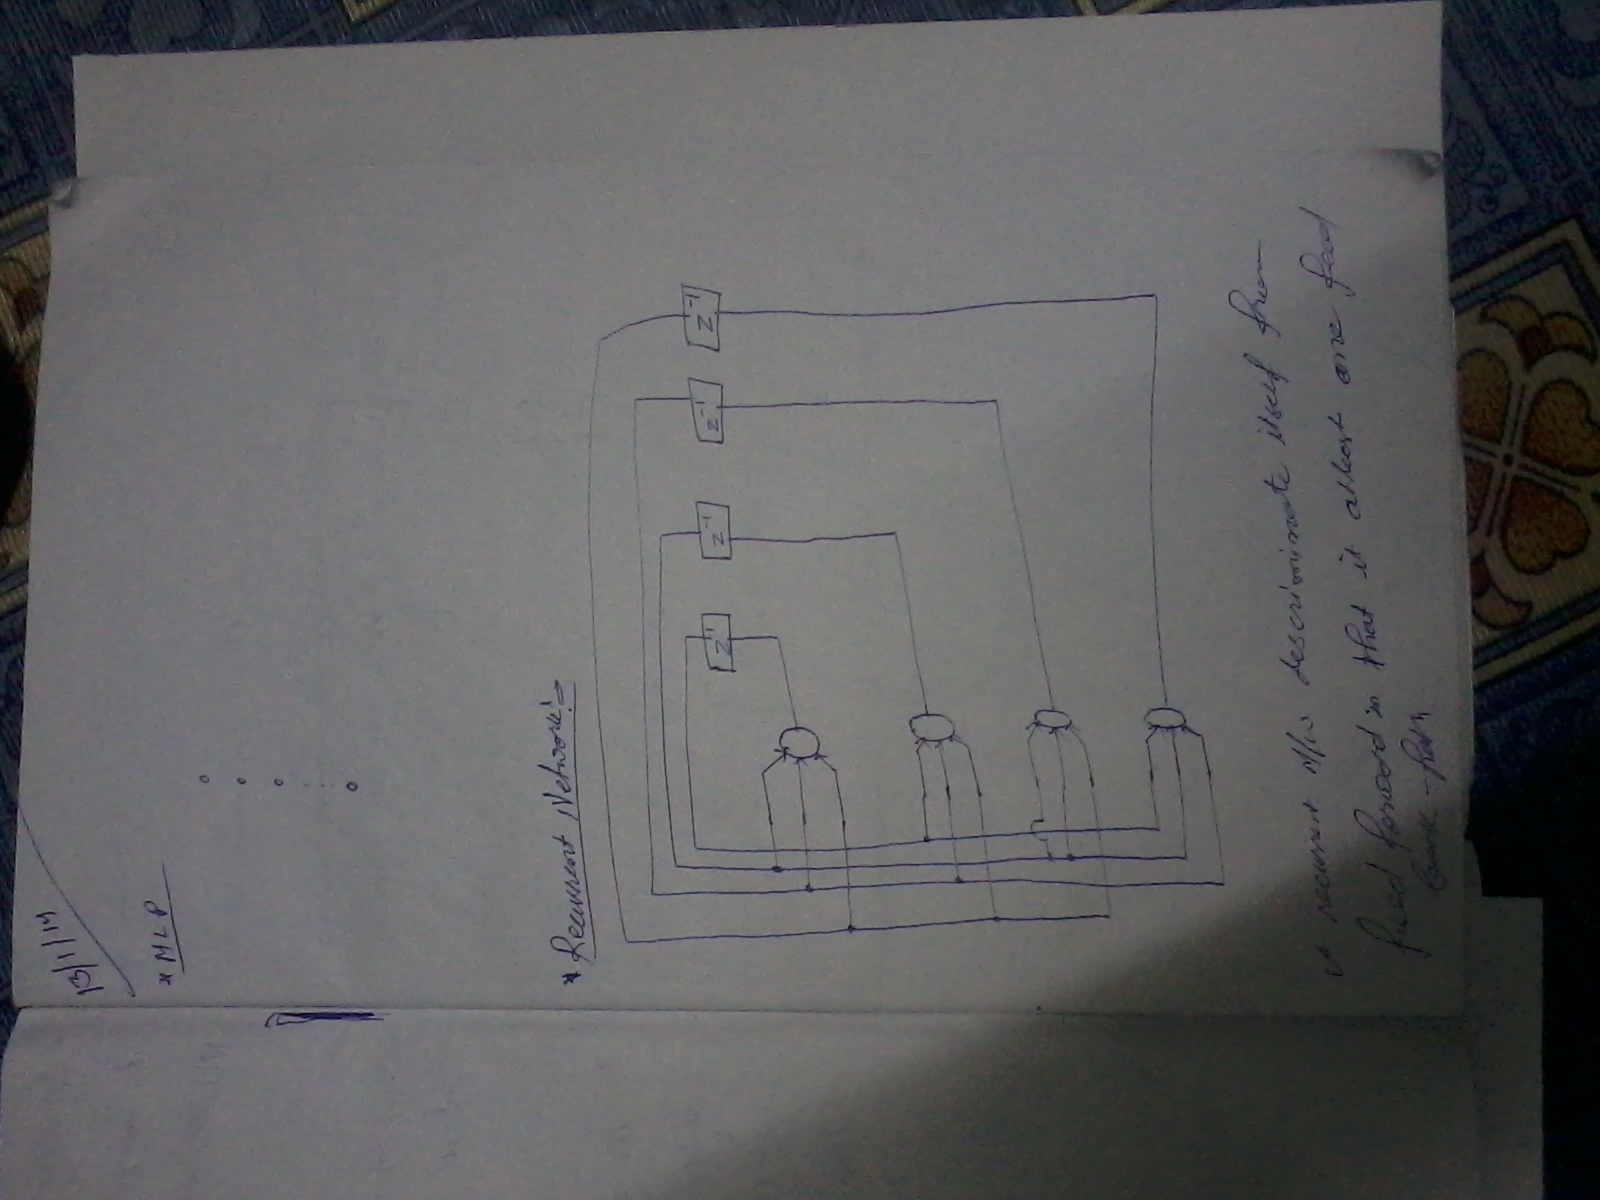 13/1/14
* MLP
* Recurrent Network :-
Z⁻¹
Z⁻¹
Z⁻¹
Z⁻¹
A recurrent N/w descriminate itself from
feed forward in that it atleast one feed
back-path